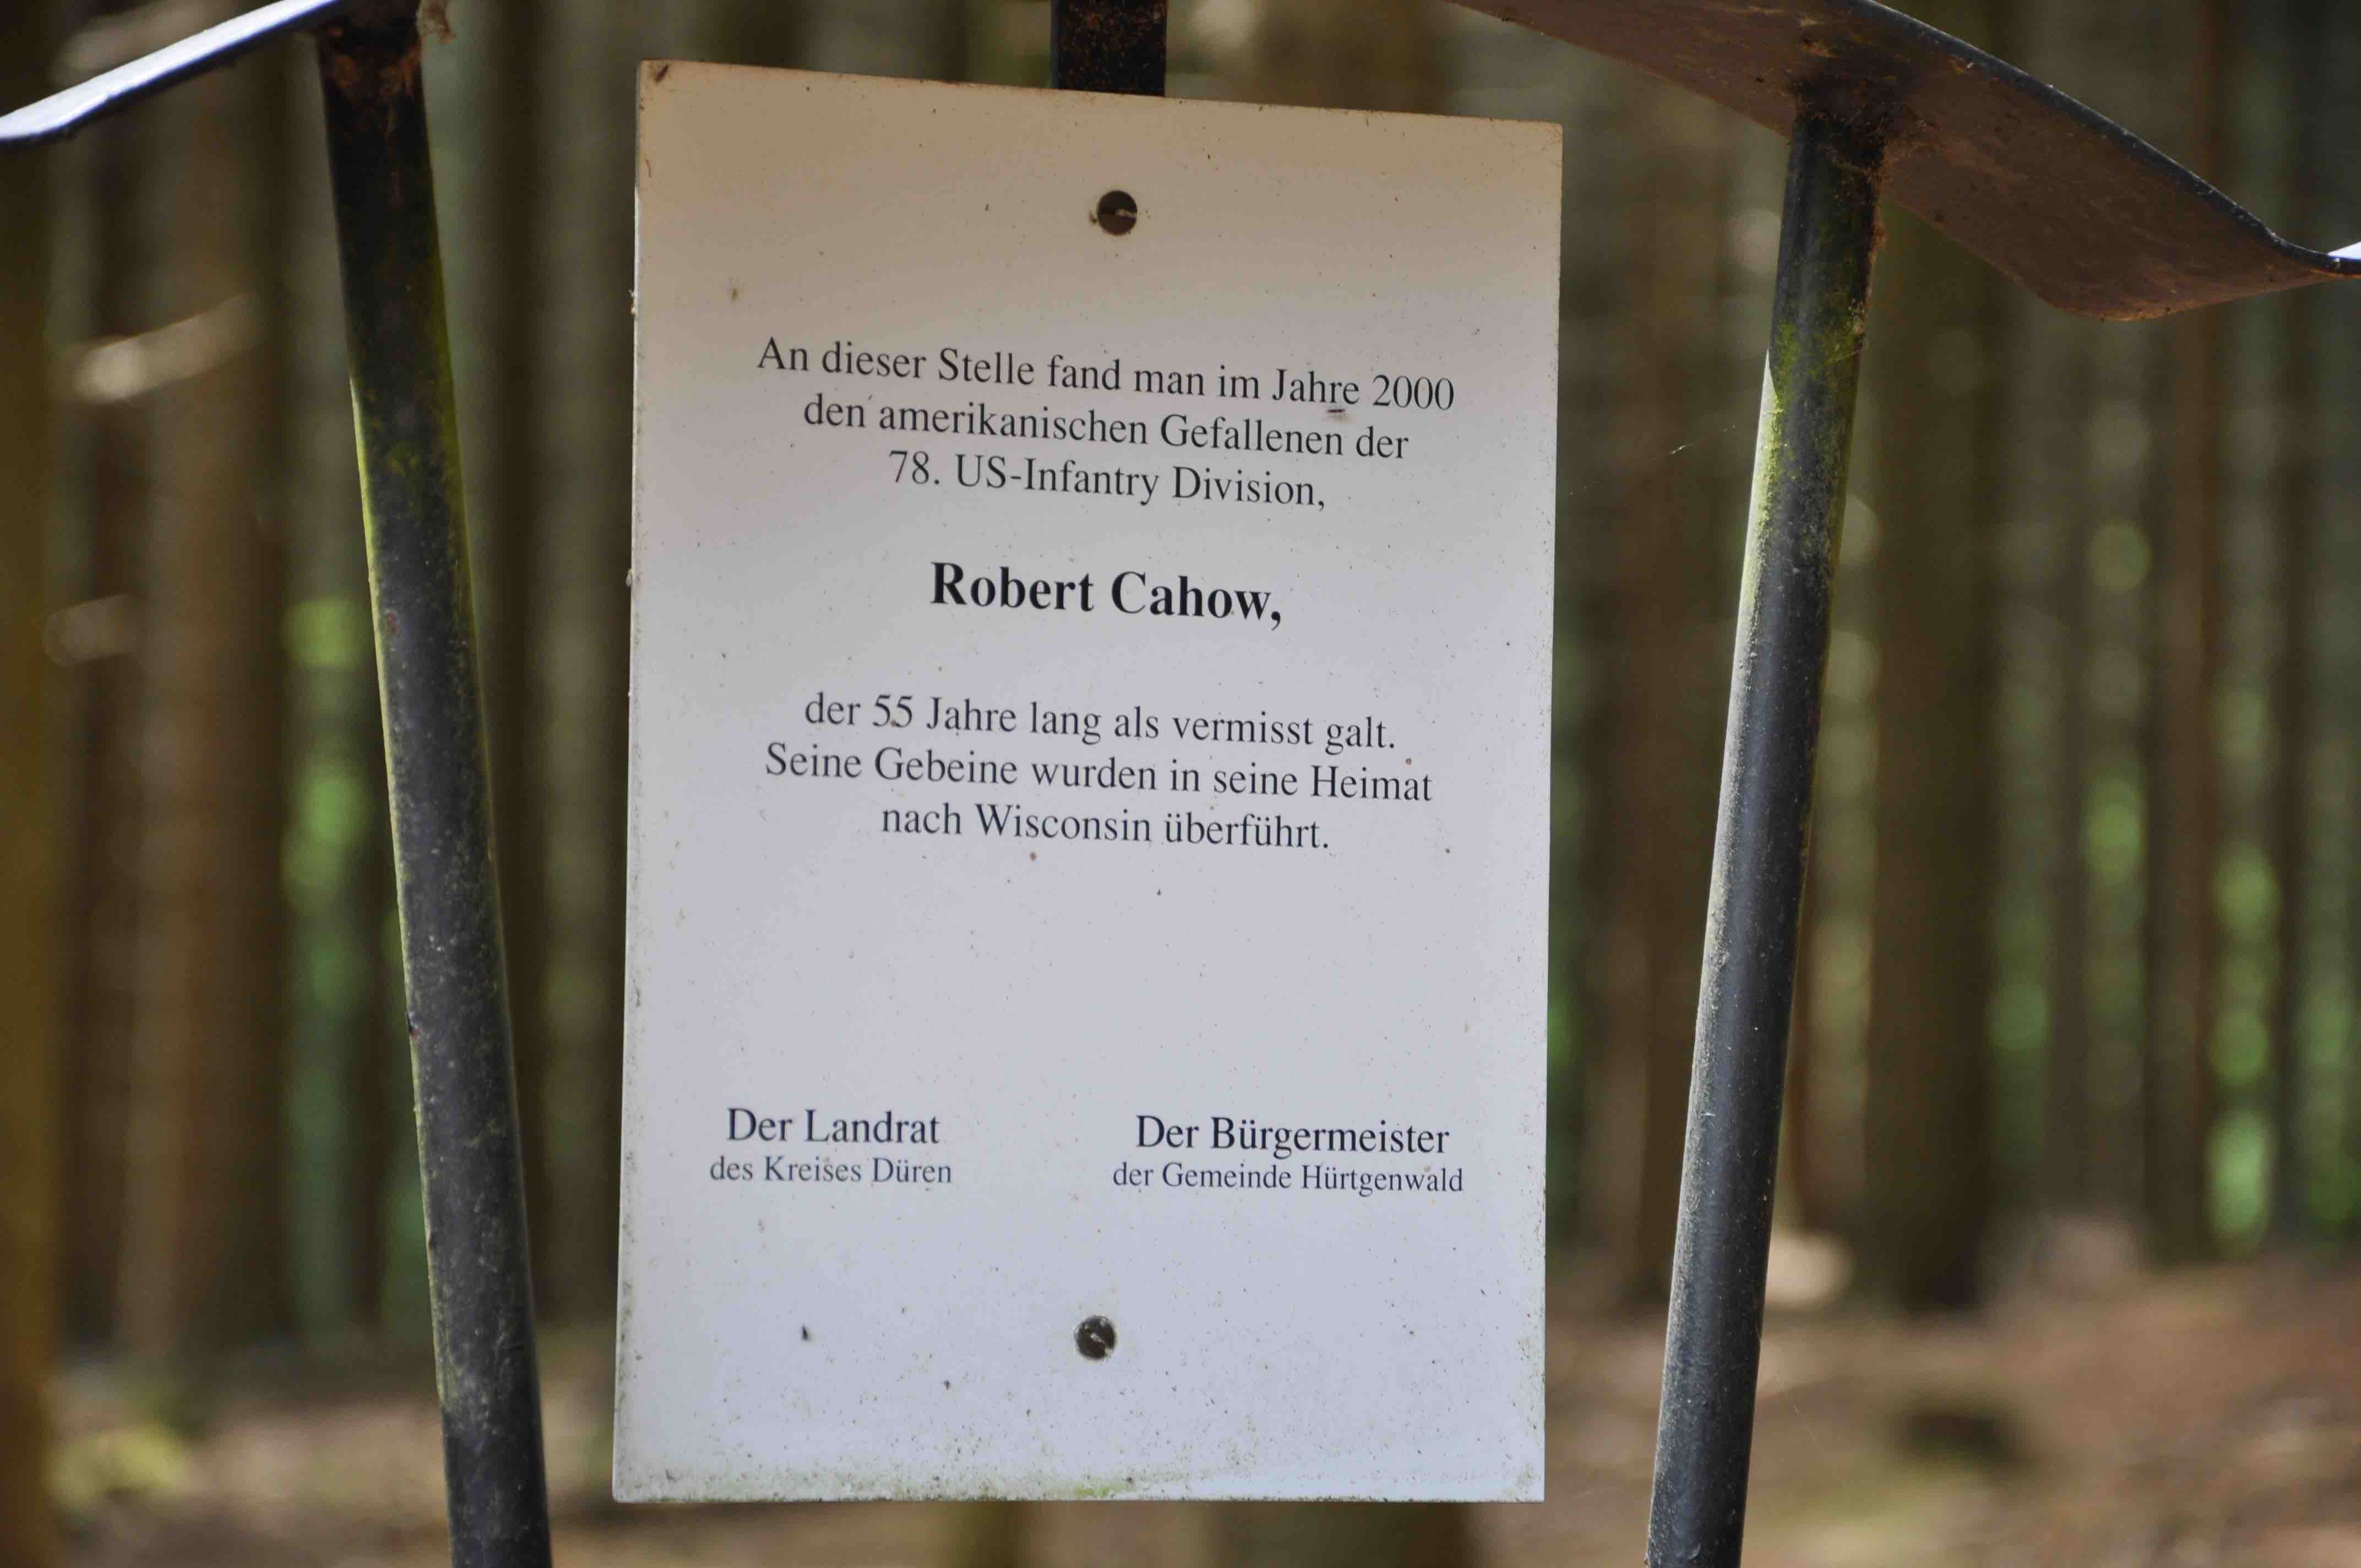 An dieser Stelle fand man im Jahre 2000
den amerikanischen Gefallenen der
78. US-Infantry Division,
Robert Cahow,
der 55 Jahre lang als vermisst galt.
Seine Gebeine wurden in seine Heimat
nach Wisconsin überführt.
Der Landrat
des Kreises Düren
Der Bürgermeister
der Gemeinde Hürtgenwald